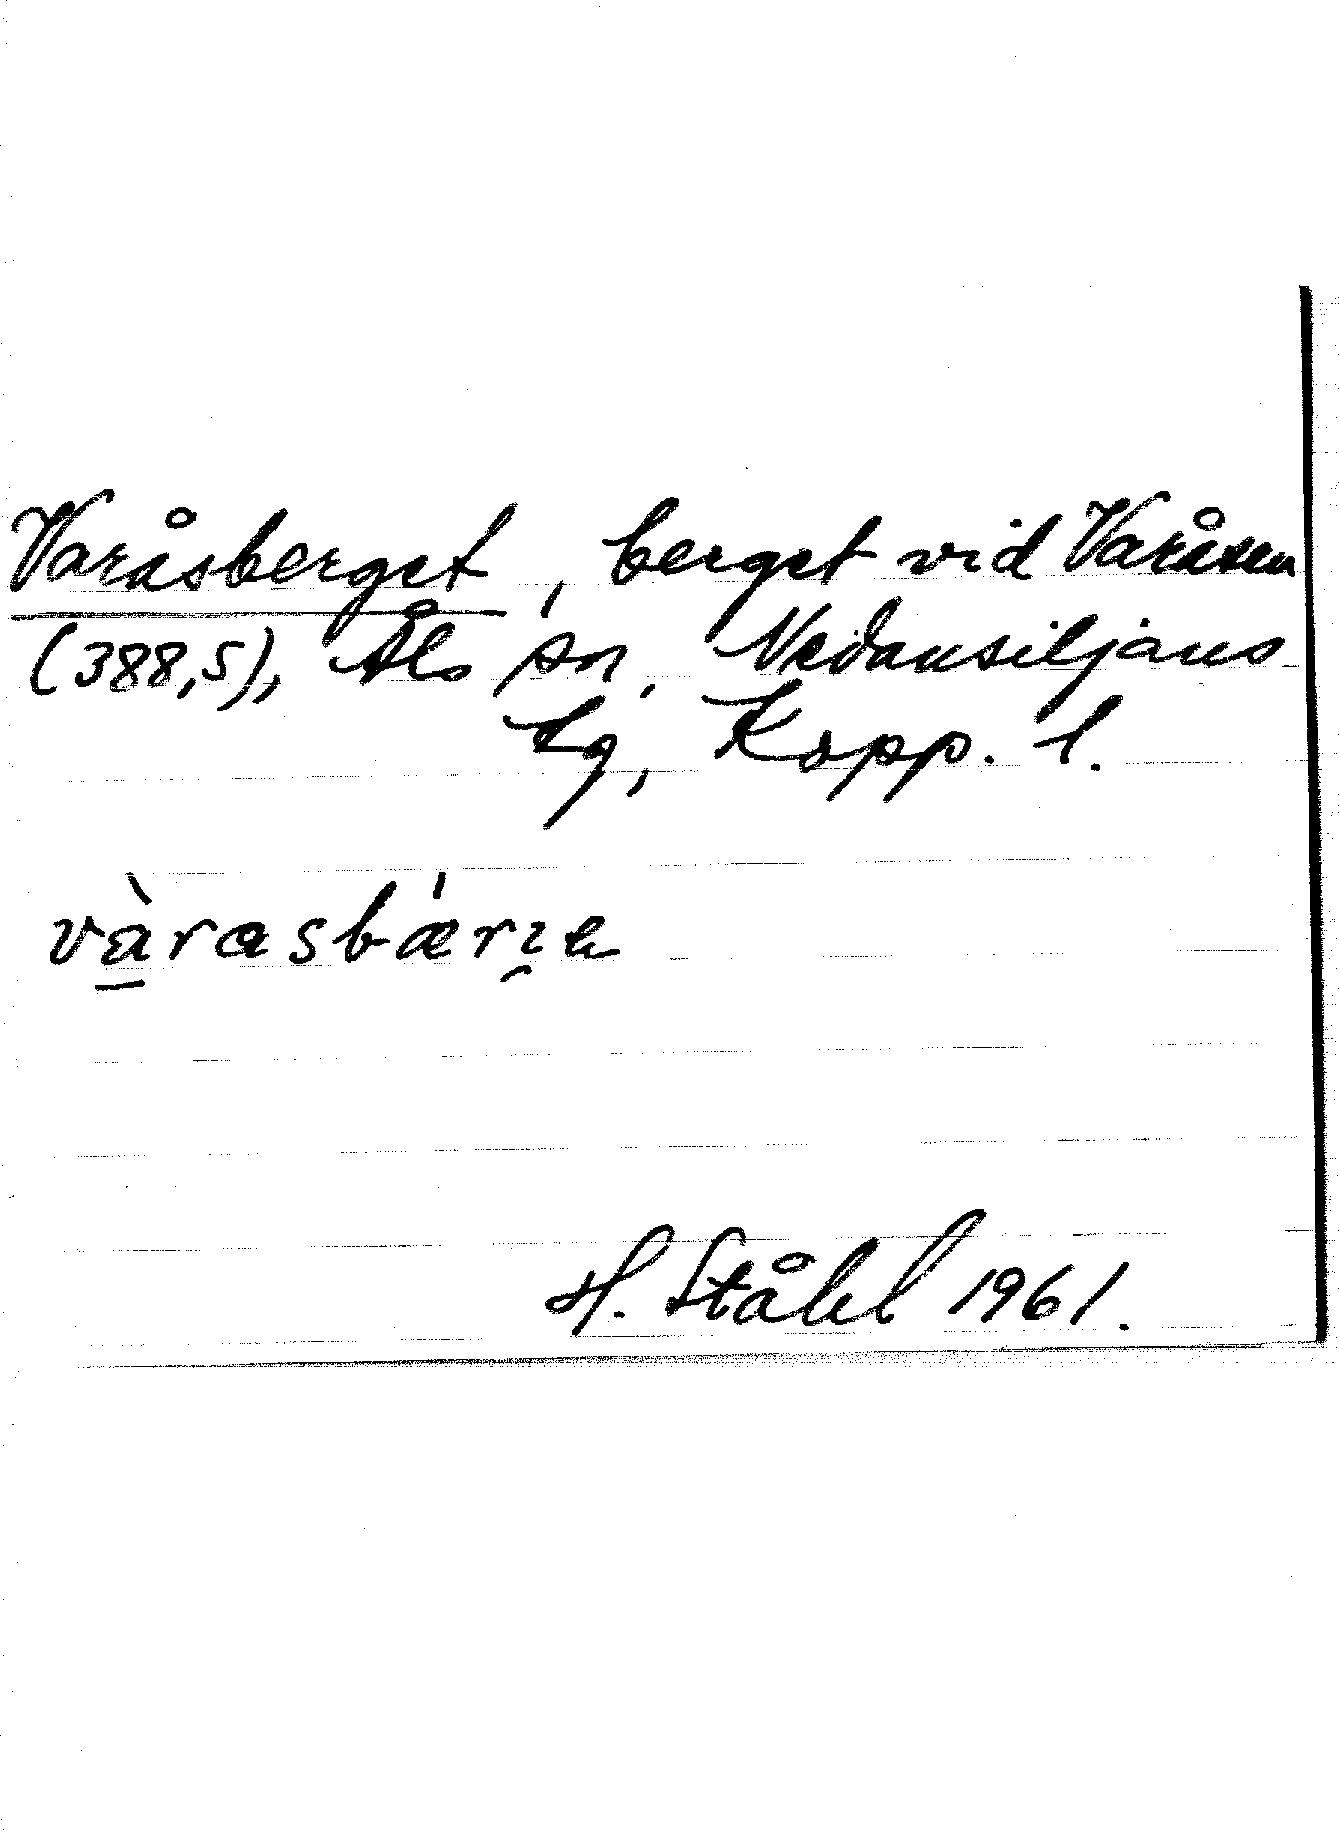 Varåsberget, berget vid Varåsen
(388,5), Åls sn, Nedansiljans
tg, Kopp. l.
vàrasbǽrı̯e
H. Ståhl 1961.